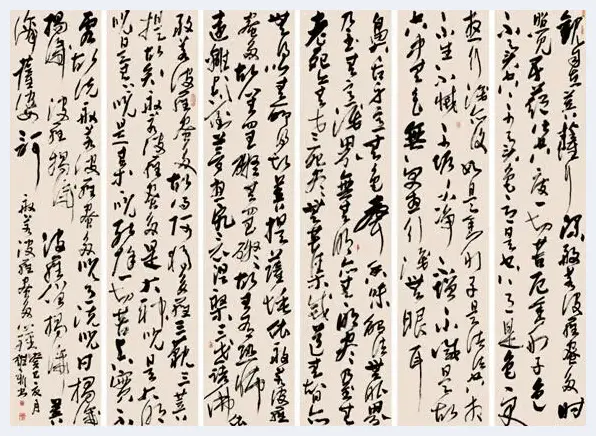 觀自在菩薩行深般若波羅蜜多時
照見五蘊皆空度一切苦厄舍利子色
不異空空不異色色即是空空即是色受
想行識亦復如是舍利子是諸法空相
不生不滅不垢不淨不增不減是故
空中無色無受想行識無眼耳
鼻舌身意無色聲香味觸法無眼界
乃至無意識界無無明亦無無明盡乃至無
老死亦無老死盡無苦集滅道無智亦
無得以無所得故菩提薩埵依般若波羅
蜜多故心無罣礙無罣礙故無有恐怖
遠離顛倒夢想究竟涅槃三世諸佛依
般若波羅蜜多故得阿耨多羅三藐三菩
提故知般若波羅蜜多是大神咒是大明
咒是無上咒是無等等咒能除一切苦真實不
虛故說般若波羅蜜多咒即說咒曰揭諦
揭諦 波羅揭諦 波羅僧揭諦 菩
提薩婆訶
般若波羅蜜多心經